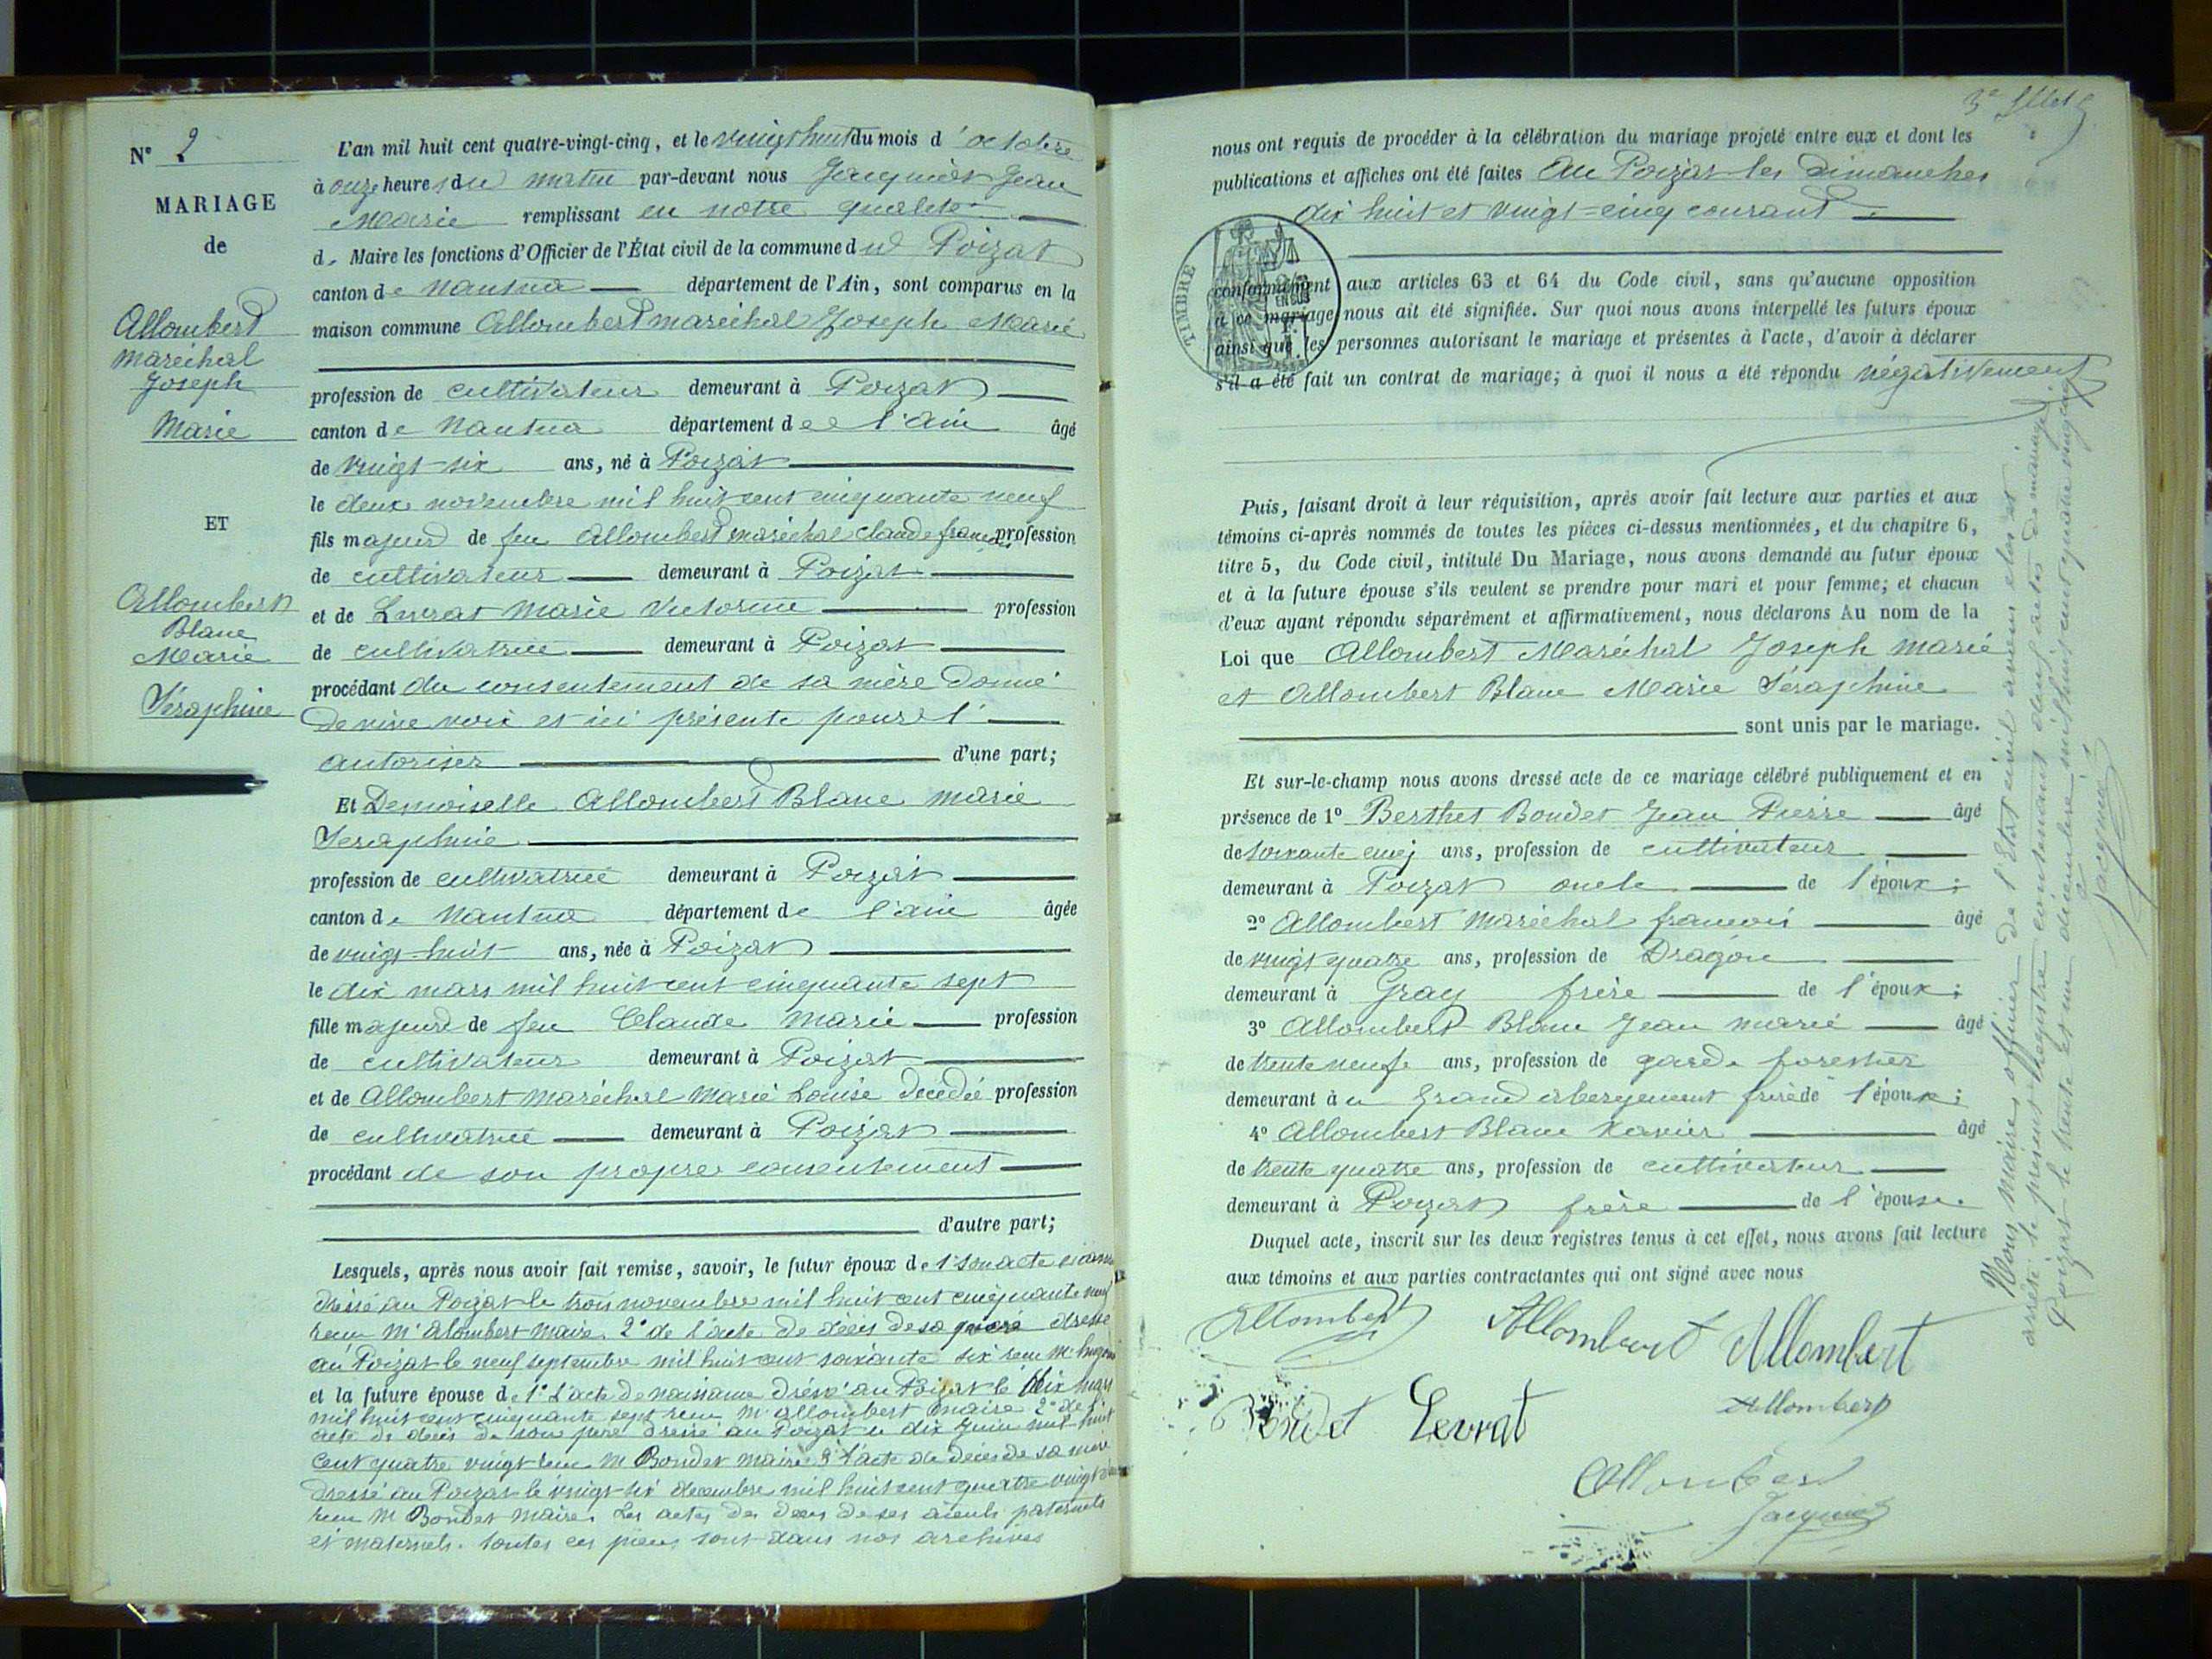 N° 2
MARIAGE
de
Allombert
Maréchal
Joseph
Marie
ET
Allombert
Blanc
Marie
Séraphine
L'an mil huit cent quatre-vingt-cinq, et le vingt huit du mois d'octobre
à onze heures du matin par-devant nous Jacquier Jean
Marie remplissant en notre qualité
de Maire les fonctions d'Officier de l'État civil de la commune du Poizat
canton de Nantua département de l'Ain, sont comparus en la
maison commune Allombert maréchal Joseph Marie
profession de cultivateur demeurant à Poizat
canton de Nantua département de l'ain âgé
de vingt-six ans, né à Poizat
le deux novembre mil huit cent cinquante neuf
fils majeur de feu Allombert maréchal Claude françois profession
de cultivateur demeurant à Poizat
et de Levrat Marie Victorine profession
de cultivatrice demeurant à Poizat
procédant du consentement de sa mère donné
de vive voix et ici présente pour l'
autoriser d'une part;
Et Demoiselle Allombert Blanc marie
Seraphine
profession de cultivatrice demeurant à Poizat
canton de Nantua département de l'ain âgée
de vingt-huit ans, née à Poizat
le dix mars mil huit cent cinquante sept
fille majeure de feu Claude Marie profession
de cultivateur demeurant à Poizat
et de Allombert Maréchal Marie Louise décédée profession
de cultivatrice demeurant à Poizat
procédant de son propre consentement
d'autre part;
Lesquels, après nous avoir fait remise, savoir, le futur époux de 1° son acte
dressé au Poizat le trois novembre mil huit cent cinquante neuf
reçu Mr alombert maire 2° de l'acte de décès de sa dressé
au Poizat le neuf septembre mil huit cent soixante six reçu Mr
et la future épouse de 1° L'acte de naissance dressé au Poizat le dix mars
mil huit cent cinquante sept reçu Mr allombert maire 2° de l'
acte de décès de son père dressé au Poizat le dix Juin mil huit
cent quatre vingt reçu M Bondet maire 3° l'acte de décès de sa mère
dressé au Poizat le vingt-six decembre mil huit cent quatre vingt
reçu M Bondet maire. Les actes de décès de ses aïeuls paternels
et maternels. toutes ces pièces sont dans nos archives
nous ont requis de procéder à la célébration du mariage projeté entre eux et dont les
publications et affiches ont été faites Au Poizat les dimanches
dix huit et vingt-cinq courant
TIMBRE
conformément aux articles 63 et 64 du Code civil, sans qu'aucune opposition
à ce mariage nous ait été signifiée. Sur quoi nous avons interpellé les futurs époux
ainsi que les personnes autorisant le mariage et présentes à l'acte, d'avoir à déclarer
s'il a été fait un contrat de mariage; à quoi il nous a été répondu négativement
Puis, faisant droit à leur réquisition, après avoir fait lecture aux parties et aux
témoins ci-après nommés de toutes les pièces ci-dessus mentionnées, et du chapitre 6,
titre 5, du Code civil, intitulé Du Mariage, nous avons demandé au futur époux
et à la future épouse s'ils veulent se prendre pour mari et pour femme; et chacun
d'eux ayant répondu séparément et affirmativement, nous déclarons Au nom de la
Loi que Allombert Maréchal Joseph marie
et Allombert Blanc Marie Séraphine
sont unis par le mariage.
Et sur-le-champ nous avons dressé acte de ce mariage célébré publiquement et en
présence de 1° Berthet Bondet Jean Pierre âgé
de soixante cinq ans, profession de cultivateur
demeurant à Poizat oncle de l'époux;
2° Allombert Maréchal françois âgé
de vingt quatre ans, profession de Dragon
demeurant à Gray frère de l'époux;
3° Allombert Blanc Jean marie âgé
de trente neuf ans, profession de garde forestier
demeurant à Grand abergement frère de l'épouse;
4° Allombert Blanc Xavier âgé
de trente quatre ans, profession de cultivateur
demeurant à Poizat frère de l'épouse.
Duquel acte, inscrit sur les deux registres tenus à cet effet, nous avons fait lecture
aux témoins et aux parties contractantes qui ont signé avec nous
Allombert Allombert Allombert
Bondet Levrat Allombert
Allombert
Jacquier
Nous maire officier de l'Etat civil avons clos et
arrêté le present registre contenant deux actes de mariage
Poizat le trente et un décembre mil huit cent quatre vingt cinq
Jacquier